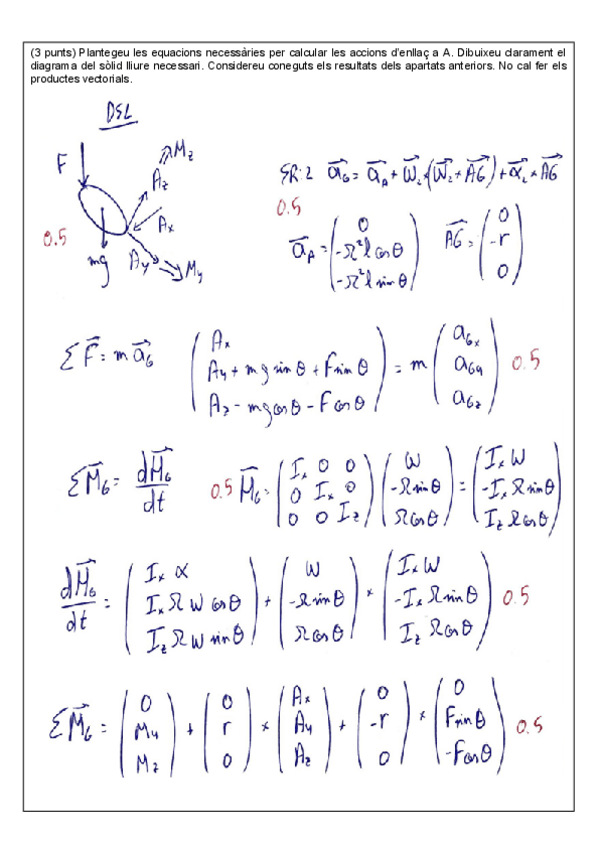 (3 punts) Plantegeu les equacions necessàries per calcular les accions d'enllaç a A. Dibuixeu clarament el
diagrama del sòlid lliure necessari. Considereu coneguts els resultats dels apartats anteriors. No cal fer els
productes vectorials.
DSL
F
M_z
A_z
A_x
A_y
M_y
mg
0.5
SR:2 a⃗_G = a⃗_A + W⃗_2 × (W⃗_2 × AG⃗) + α⃗_2 × AG⃗
0.5
a⃗_A = (0, -Ω²l cosθ, -Ω²l sinθ) AG⃗ = (0, -r, 0)
ΣF⃗ = m a⃗_G (A_x, A_y + mg sinθ + F sinθ, A_z - mg cosθ - F cosθ) = m (a_Gx, a_Gy, a_Gz) 0.5
ΣM⃗_G = dH⃗_G/dt 0.5 H⃗_G = (I_x 0 0, 0 I_x 0, 0 0 I_z) (W, -Ω sinθ, Ω cosθ) = (I_x W, -I_x Ω sinθ, I_z Ω cosθ)
dH⃗_G/dt = (I_x α, I_x Ω W cosθ, I_z Ω W sinθ) + (W, -Ω sinθ, Ω cosθ) × (I_x W, -I_x Ω sinθ, I_z Ω cosθ) 0.5
ΣM⃗_G = (0, M_y, M_z) + (0, r, 0) × (A_x, A_y, A_z) + (0, -r, 0) × (0, F sinθ, -F cosθ) 0.5